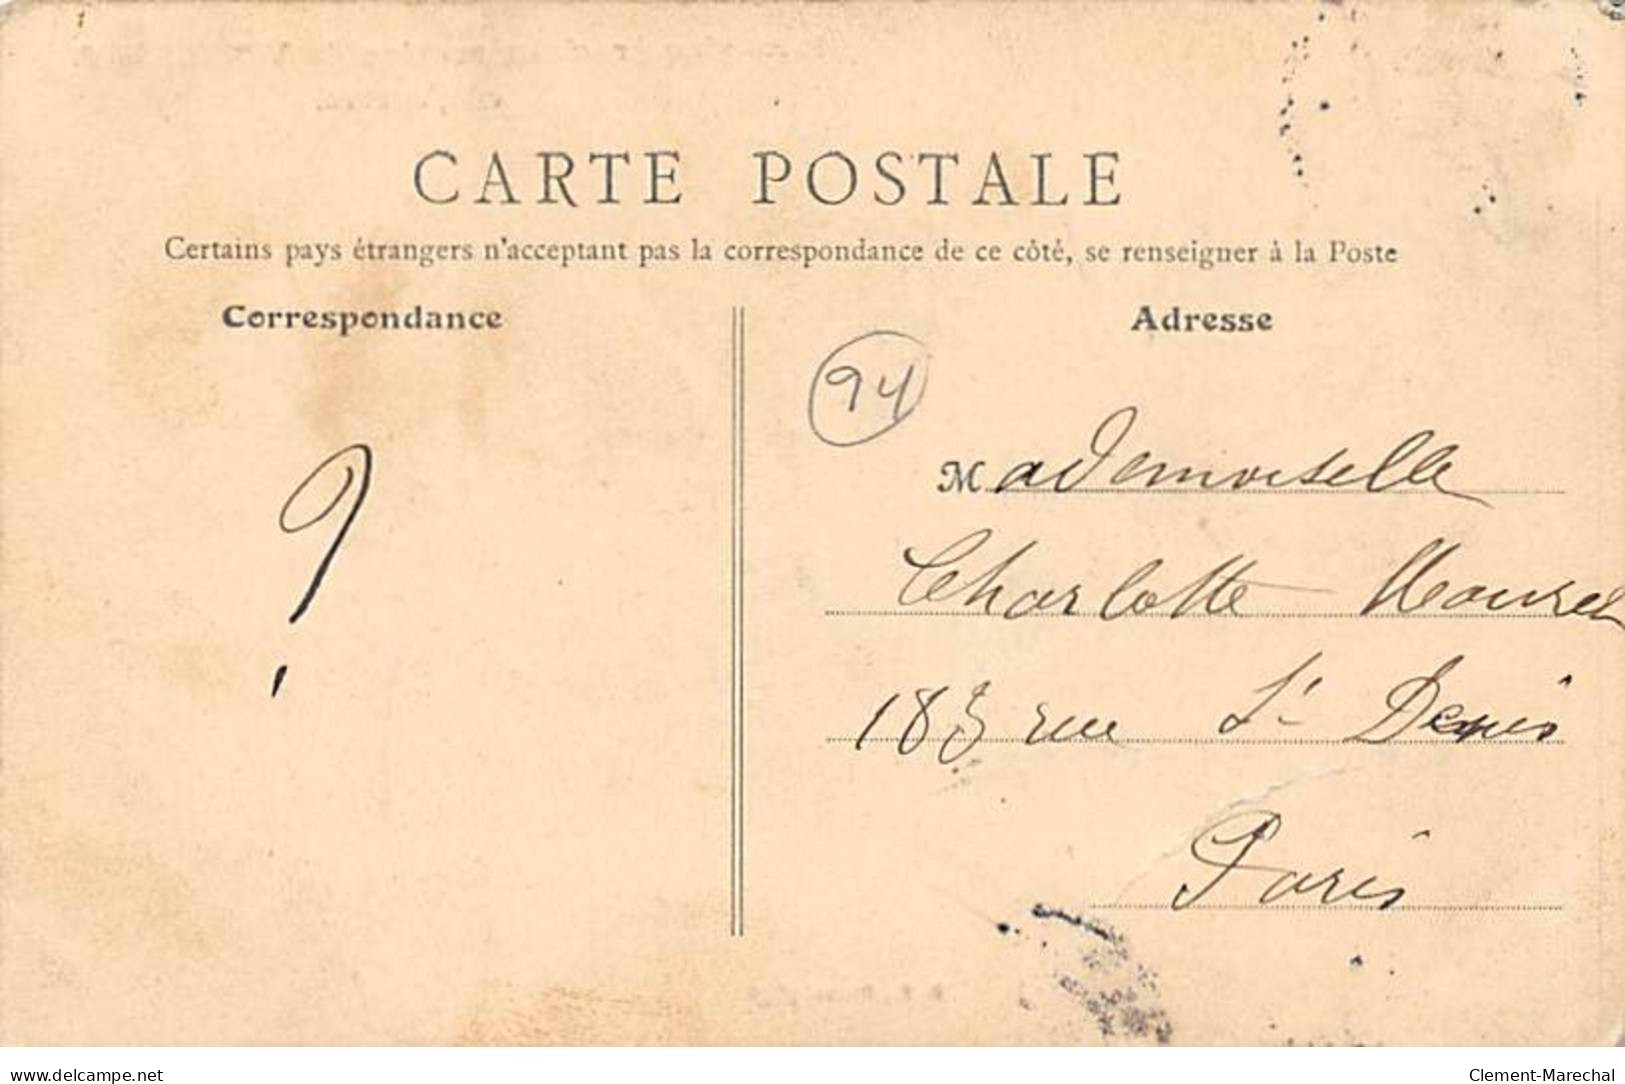 CARTE POSTALE
Certains pays étrangers n'acceptant pas la correspondance de ce côté, se renseigner à la Poste
Correspondance
Adresse
94
?
Mademoiselle
Charlotte
183 rue St Denis
Paris
www.delcampe.net
Clement-Marechal